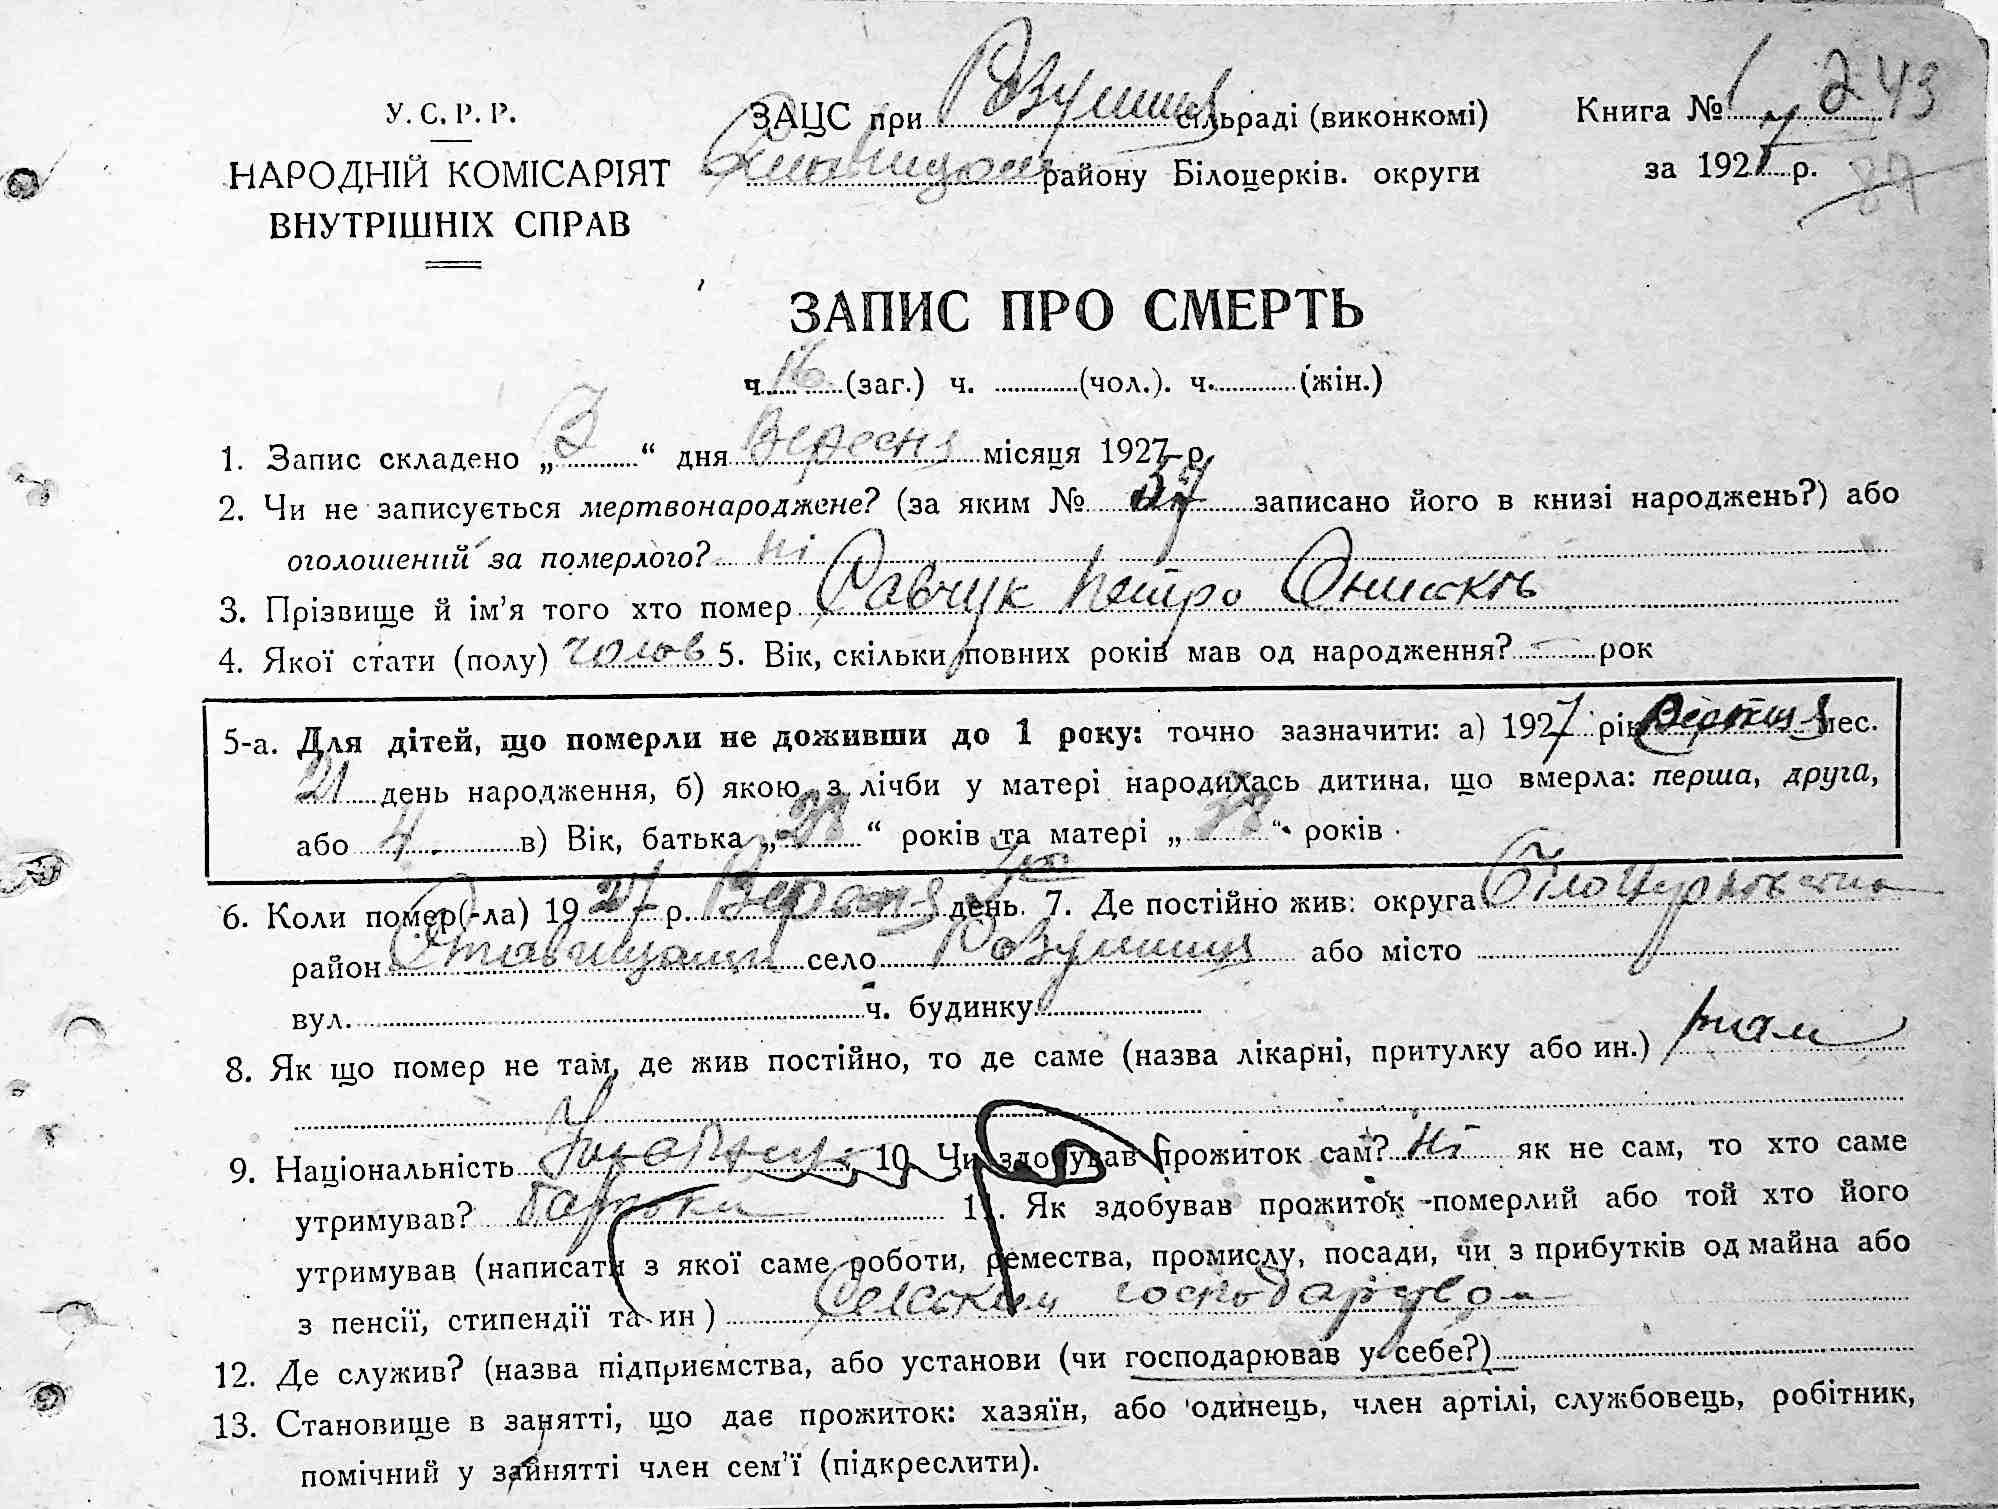 У. С. Р. Р.
НАРОДНІЙ КОМІСАРІЯТ
ВНУТРІШНІХ СПРАВ
ЗАЦС при сільраді (виконкомі)
району Білоцерків. округи
Книга № 1 243
за 1927 р.
87
ЗАПИС ПРО СМЕРТЬ
ч. 16 (заг.) ч. (чол.). ч. (жін.)
1. Запис складено „ 3 “ дня Вересня місяця 1927 р.
2. Чи не записується мертвонароджене? (за яким № 37 записано його в книзі народжень?) або
оголошений за померлого? Ні
3. Прізвище й ім’я того хто помер Савчук Петро
4. Якої стати (полу) чолов 5. Вік, скільки повних років мав од народження? — рок
5-а. Для дітей, що померли не доживши до 1 року: точно зазначити: а) 1927 рік мес.
21 день народження, б) якою з лічби у матері народилась дитина, що вмерла: перша, друга,
або 4 в) Вік, батька „ 28 “ років та матері „ 28 “ років
6. Коли помер(-ла) 1927 р. Вересня день. 7. Де постійно жив: округа
район село Розумниця або місто
вул. ч. будинку
8. Як що помер не там, де жив постійно, то де саме (назва лікарні, притулку або ин.) там
9. Національність 10. Чи здобував прожиток сам? Ні як не сам, то хто саме
утримував? батьки 11. Як здобував прожиток померлий або той хто його
утримував (написати з якої саме роботи, ремества, промислу, посади, чи з прибутків од майна або
з пенсії, стипендії та ин ) Сельским господарством
12. Де служив? (назва підприємства, або установи (чи господарював у себе?)
13. Становище в занятті, що дає прожиток: хазяїн, або одинець, член артілі, службовець, робітник,
помічний у зайнятті член сем’ї (підкреслити).